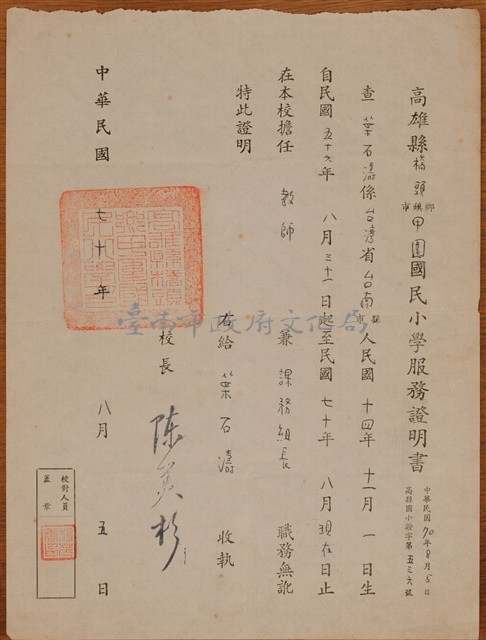 高雄縣橋頭鄉鎮市甲圍國民小學服務證明書
中華民國70年8月5日
高縣國小證字第五三六號
查 葉石濤係台灣省台南縣市人民國十四年十一月一日生
自民國五十六年八月三十一日起至民國七十年八月現在日止
在本校擔任 教師 兼 課務組長 職務無訛
特此證明
右給 葉石濤 收執
校長
中華民國七十年八月五日
校對人員
蓋章
臺南市政府文化局